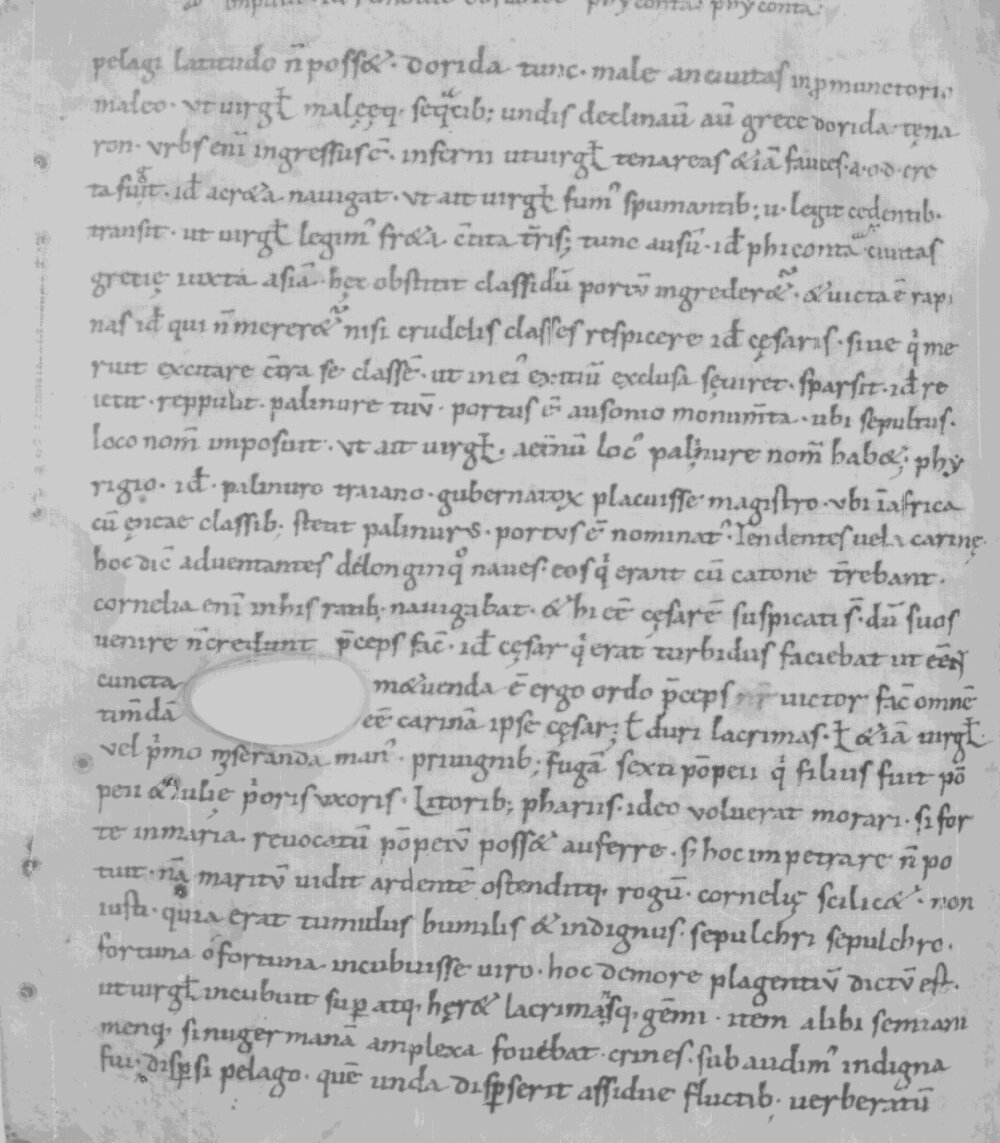 pelagi latitudo n̄ poss&. dorida tunc. male an ciuitas in ꝑmunctorio
maleo. vt uirgł malęęq. seq̄tib; undis declinaū aū grece dorida. tęna
ron. vrbs enī ingressus ē. inferni ut uirgł tenareas &iā fauces. a. o. d. cre
ta fuit. id acr&a nauigat. vt ait uirgł fum᾽ spumantib; u. legit cedentib.
transit. ut uirgł legim᾽ fr&a c̄tita t̄ris; tunc ausū. id phiconta ciuitas
gretię iuxta asiā. hęc obstitit classi dū portū ingreder&. & uicta ē rapi
nas id qui n̄ merer& nisi crudelis classes respicere id cęsaris. siue q̍ me
ruit excitare c̄tra se classē. ut in ei᾽ exitiū exclusa sęuiret. sparsit. id re
iecit. reppulit. palinure tuū. portus ē ausonio monum̄ta. ubi sepultus.
loco nom̄ imposuit. vt ait uirgł. aet̄nū loc᾽ palinure nom̄ hab&; phy
rigio. id. palinuro traiano. gubernatoꝝ placuisse magistro. vbi ī africa
cū ęneae classib; stetit palinurus. portus ē nominat᾽. Tendentes uela carinę.
hoc dic̄ aduentantes de longinq̊ naues. eos q̍ erant cū catone t̄rebant.
cornelia enī in his ratib; nauigabat. & hi eē cęsarē suspicati s̄. dū suos
uenire n̄ credunt p̄ceps fac̄. id cęsar q̍ erat turbidus faciebat ut eēn̄
cuncta m&uenda ē ergo ordo p̄ceps victor fac̄ omnē
tim̄dā eē carinā ipse cęsar; ł duri lacrimas. ł &iā uirgł.
vel p̍mo mseranda man᾽. priuignib; fugā sexti pōpeii q̍ filius fuit pō
peii & iulię p̍oris vxoris. Litorib; phariis. ideo voluerat morari. si for
te in maria reuocatū pōpeiū poss& auferre. s; hoc impetrare n̄ po
tuit. nā maritū uidit ardentē ostenditq; rogū. cornelię scilic&. non
iusti. quia erat tumulus humilis & indignus. sepulchri sepulchro.
fortuna ó fortuna incubuisse uiro. hoc de more plagentiū dictū est.
ut uirgł incubuit suꝑ atq, hęr& lacrimasq, gēmi. item alibi semiani
menq, sinu germanā amplexa fouebat. crines. subaudim᾽ indigna
fui. disꝑsi pelago. quē unda disꝑserit assidue fluctib; uerberatū